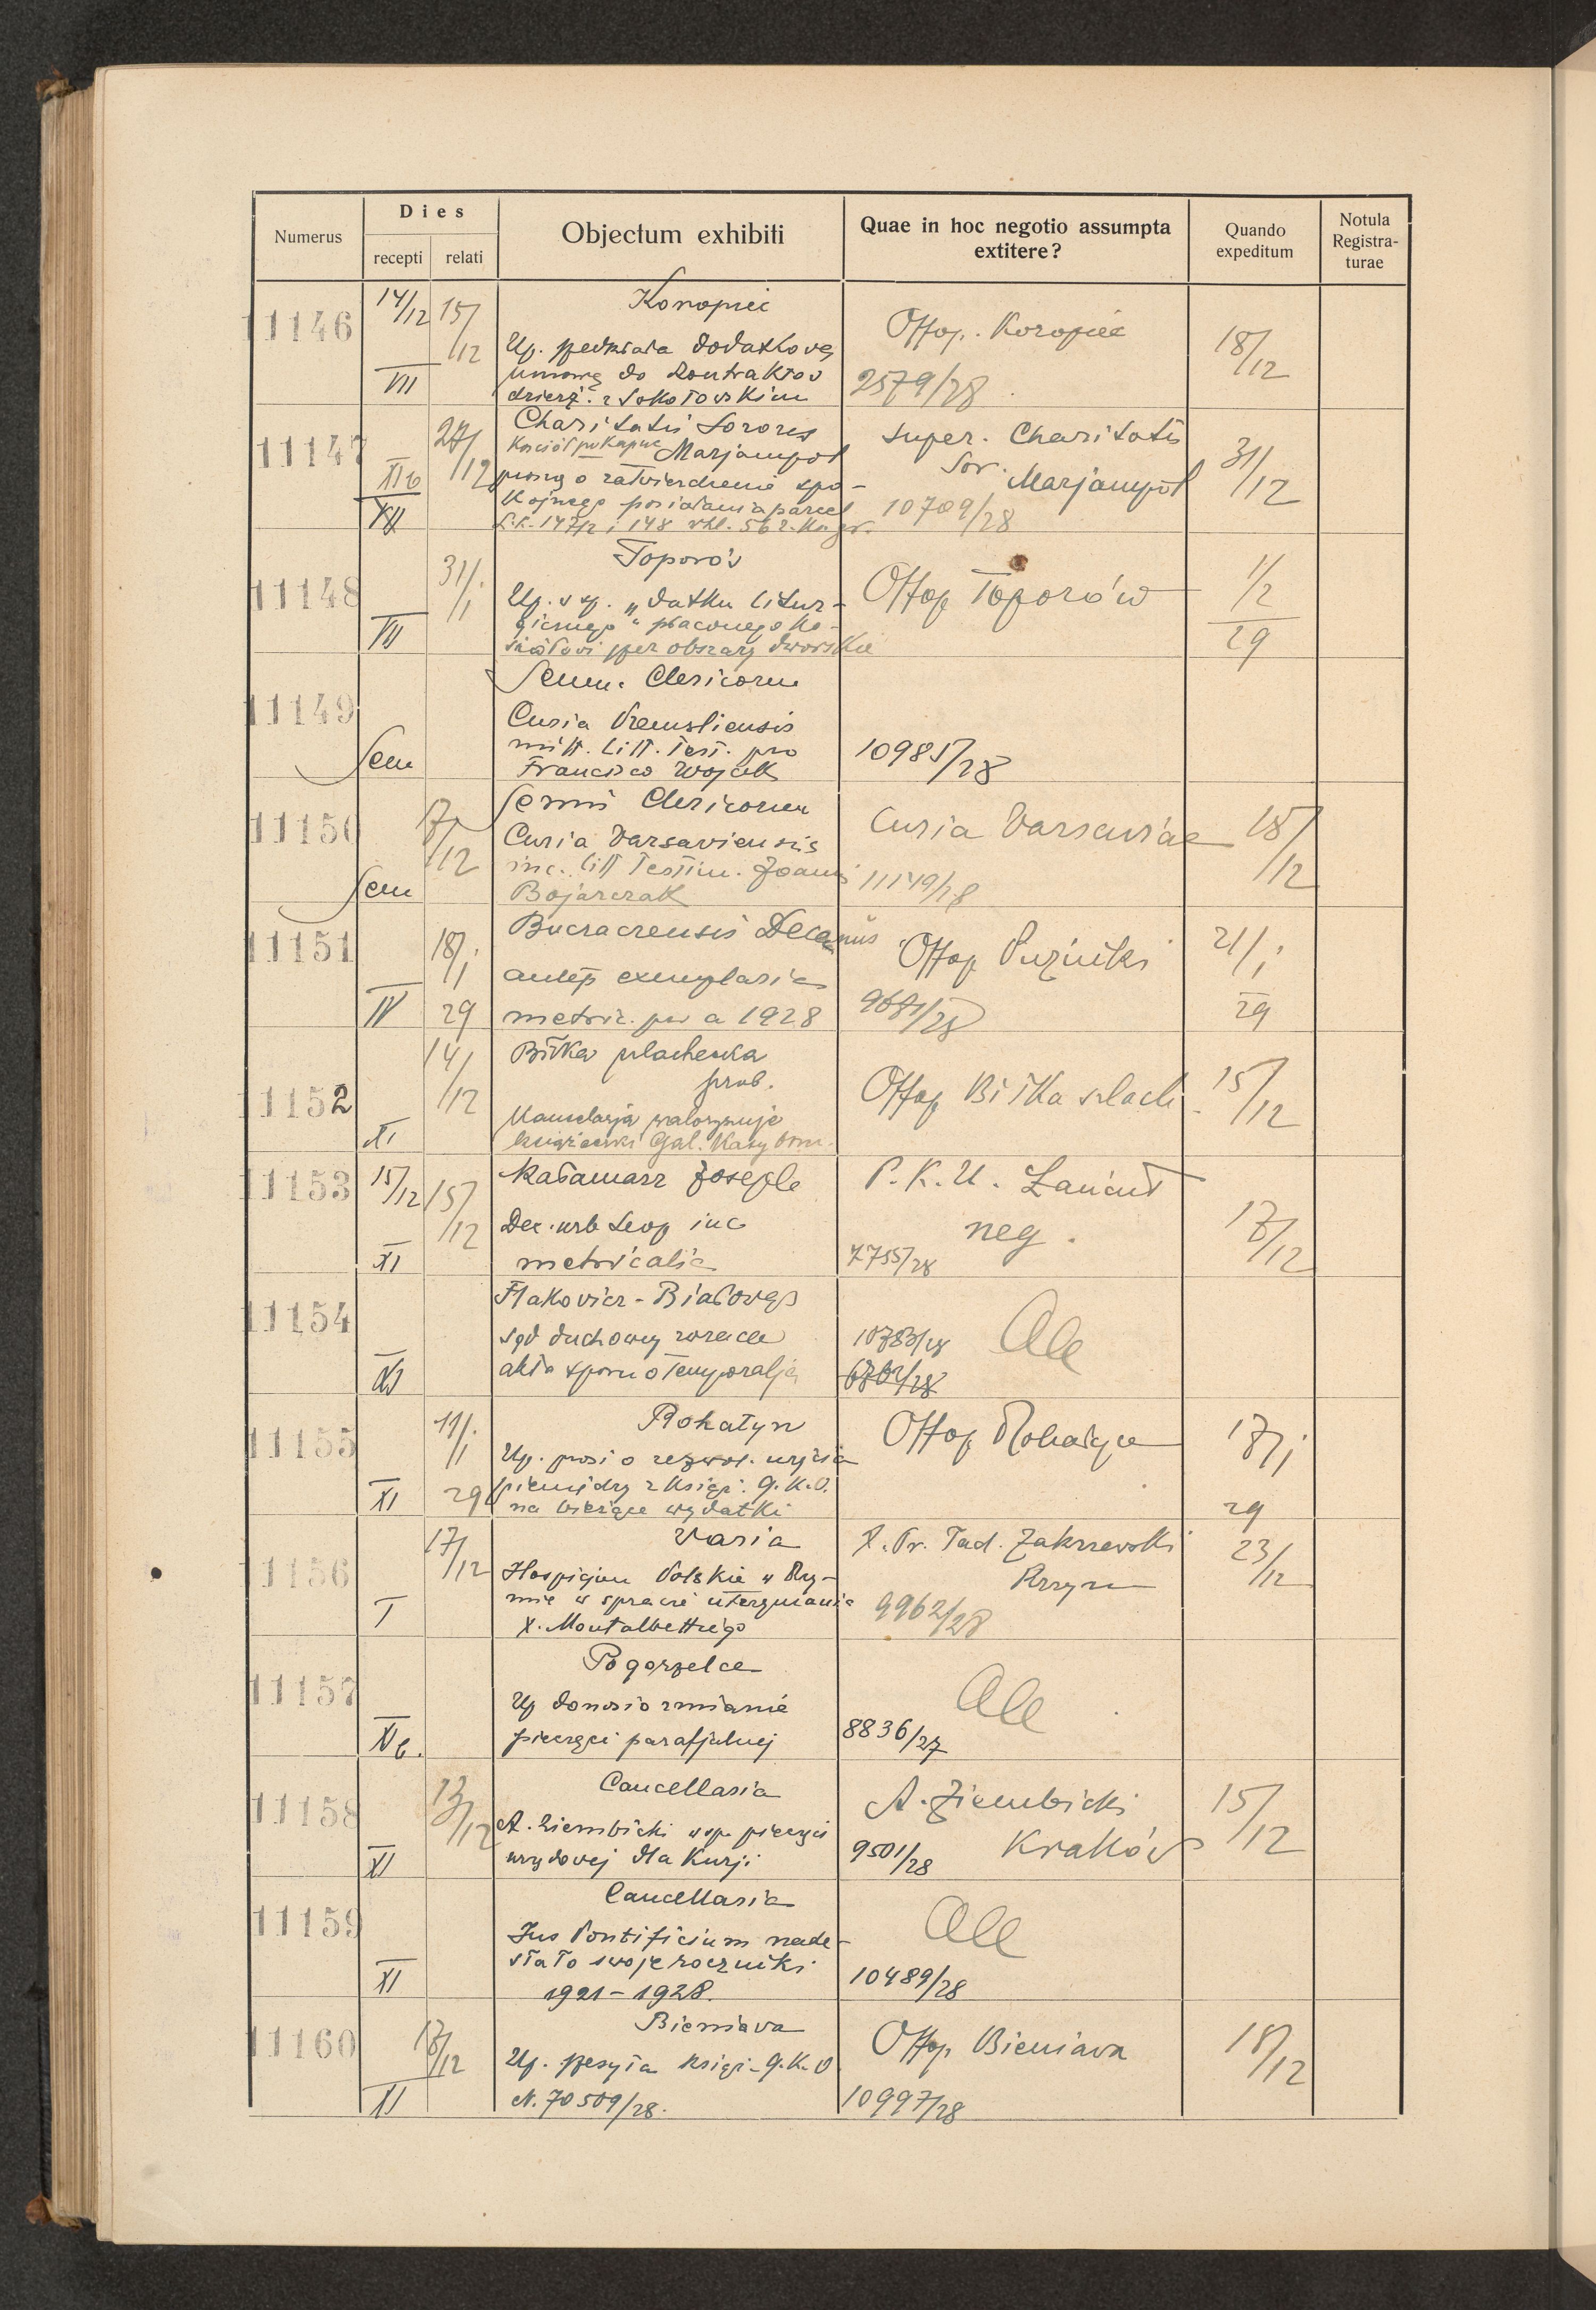 Numerus
Dies
recepti
relati
Objectum exhibiti
Quae in hoc negotio assumpta
extitere?
Quando
expeditum
Notula
Registra-
turae
11146
14/12
15/12
VII
Koropiec
Up. przedkłada dodatkową
umowę do kontraktów
dzierż. z Sokołowskim
Offop. Koropiec
2579/28
18/12
11147
27/12
XIb
XII
Charitatis Sorores
Kościół pokapuc Marjampol
proszą o zatwierdzenie spo-
kojnego posiadania parcel
l.k. 147/2 i 148 whl. 562. ks. gr.
Super. Charitatis
Sor. Marjampol
10709/28
31/12
11148
31/1
VII
Toporów
Up. w sp. „datku litur-
gicznego" płaconego ko-
ściołowi przez obszary dworskie
Offop Toporów
1/2
29
11149
Sem
Semin. Clericorum
Curia Premisliensis
mitt. litt. test. pro
Francisco Wojcik
10985/28
11150
17/12
Sem
Semin Clericorum
Curia Varsaviensis
inc. litt Testim. Joannis
Bojarczak
Curia Varsaviae
11149/28
18/12
11151
18/I
29
IV
Buczaczensis Decanus
antep exemplaria
metric. pro a 1928
Offop Puźniki
9681/28
21/I
29
11152
14/12
XI
Biłka szlachecka
prob.
Kancelarja waloryzuje
książeczki Gal. Kasy Oszcz.
Offop Biłka szlach.
15/12
11153
15/12
15/12
XI
Kałamarz Joseph
Dec. urb Leop inc
metricalia
P.K.U. Łańcut
neg.
7755/28
17/12
11154
XI
Flakovicz - Białowąs
sąd duchowny zwraca
akta sporu o temporalja
10783/28
6762/28
Ale
11155
11/I
29
XI
Rohatyn
Up. prosi o zezwol. użycia
pieniędzy z książ. G.K.O.
na bieżące wydatki
Offop Rohatyn
17/I
29
11156
17/12
I
Varia
Hospicjum Polskie w Rzy-
mie w sprawie utrzymania
X. Montalbettiego
X. Pr. Tad. Zakrzewski
Rzym
9962/28
23/12
11157
XIb.
Pogorzelce
Up donosi o zmianie
pieczęci parafjalnej
8836/27
Ale
11158
13/12
XI
Cancellaria
A. Ziembicki w sp. pieczęci
urzędowej dla Kurji
A. Ziembicki
Kraków
9501/28
15/12
11159
XI
Cancellaria
Jus Pontificium nade-
słało swoje roczniki
1921 - 1928.
Ale
10489/28
11160
17/12
XI
Bieniawa
Up. przesyła książ. G.K.O.
N. 70509/28.
Offop. Bieniawa
10997/28
18/12